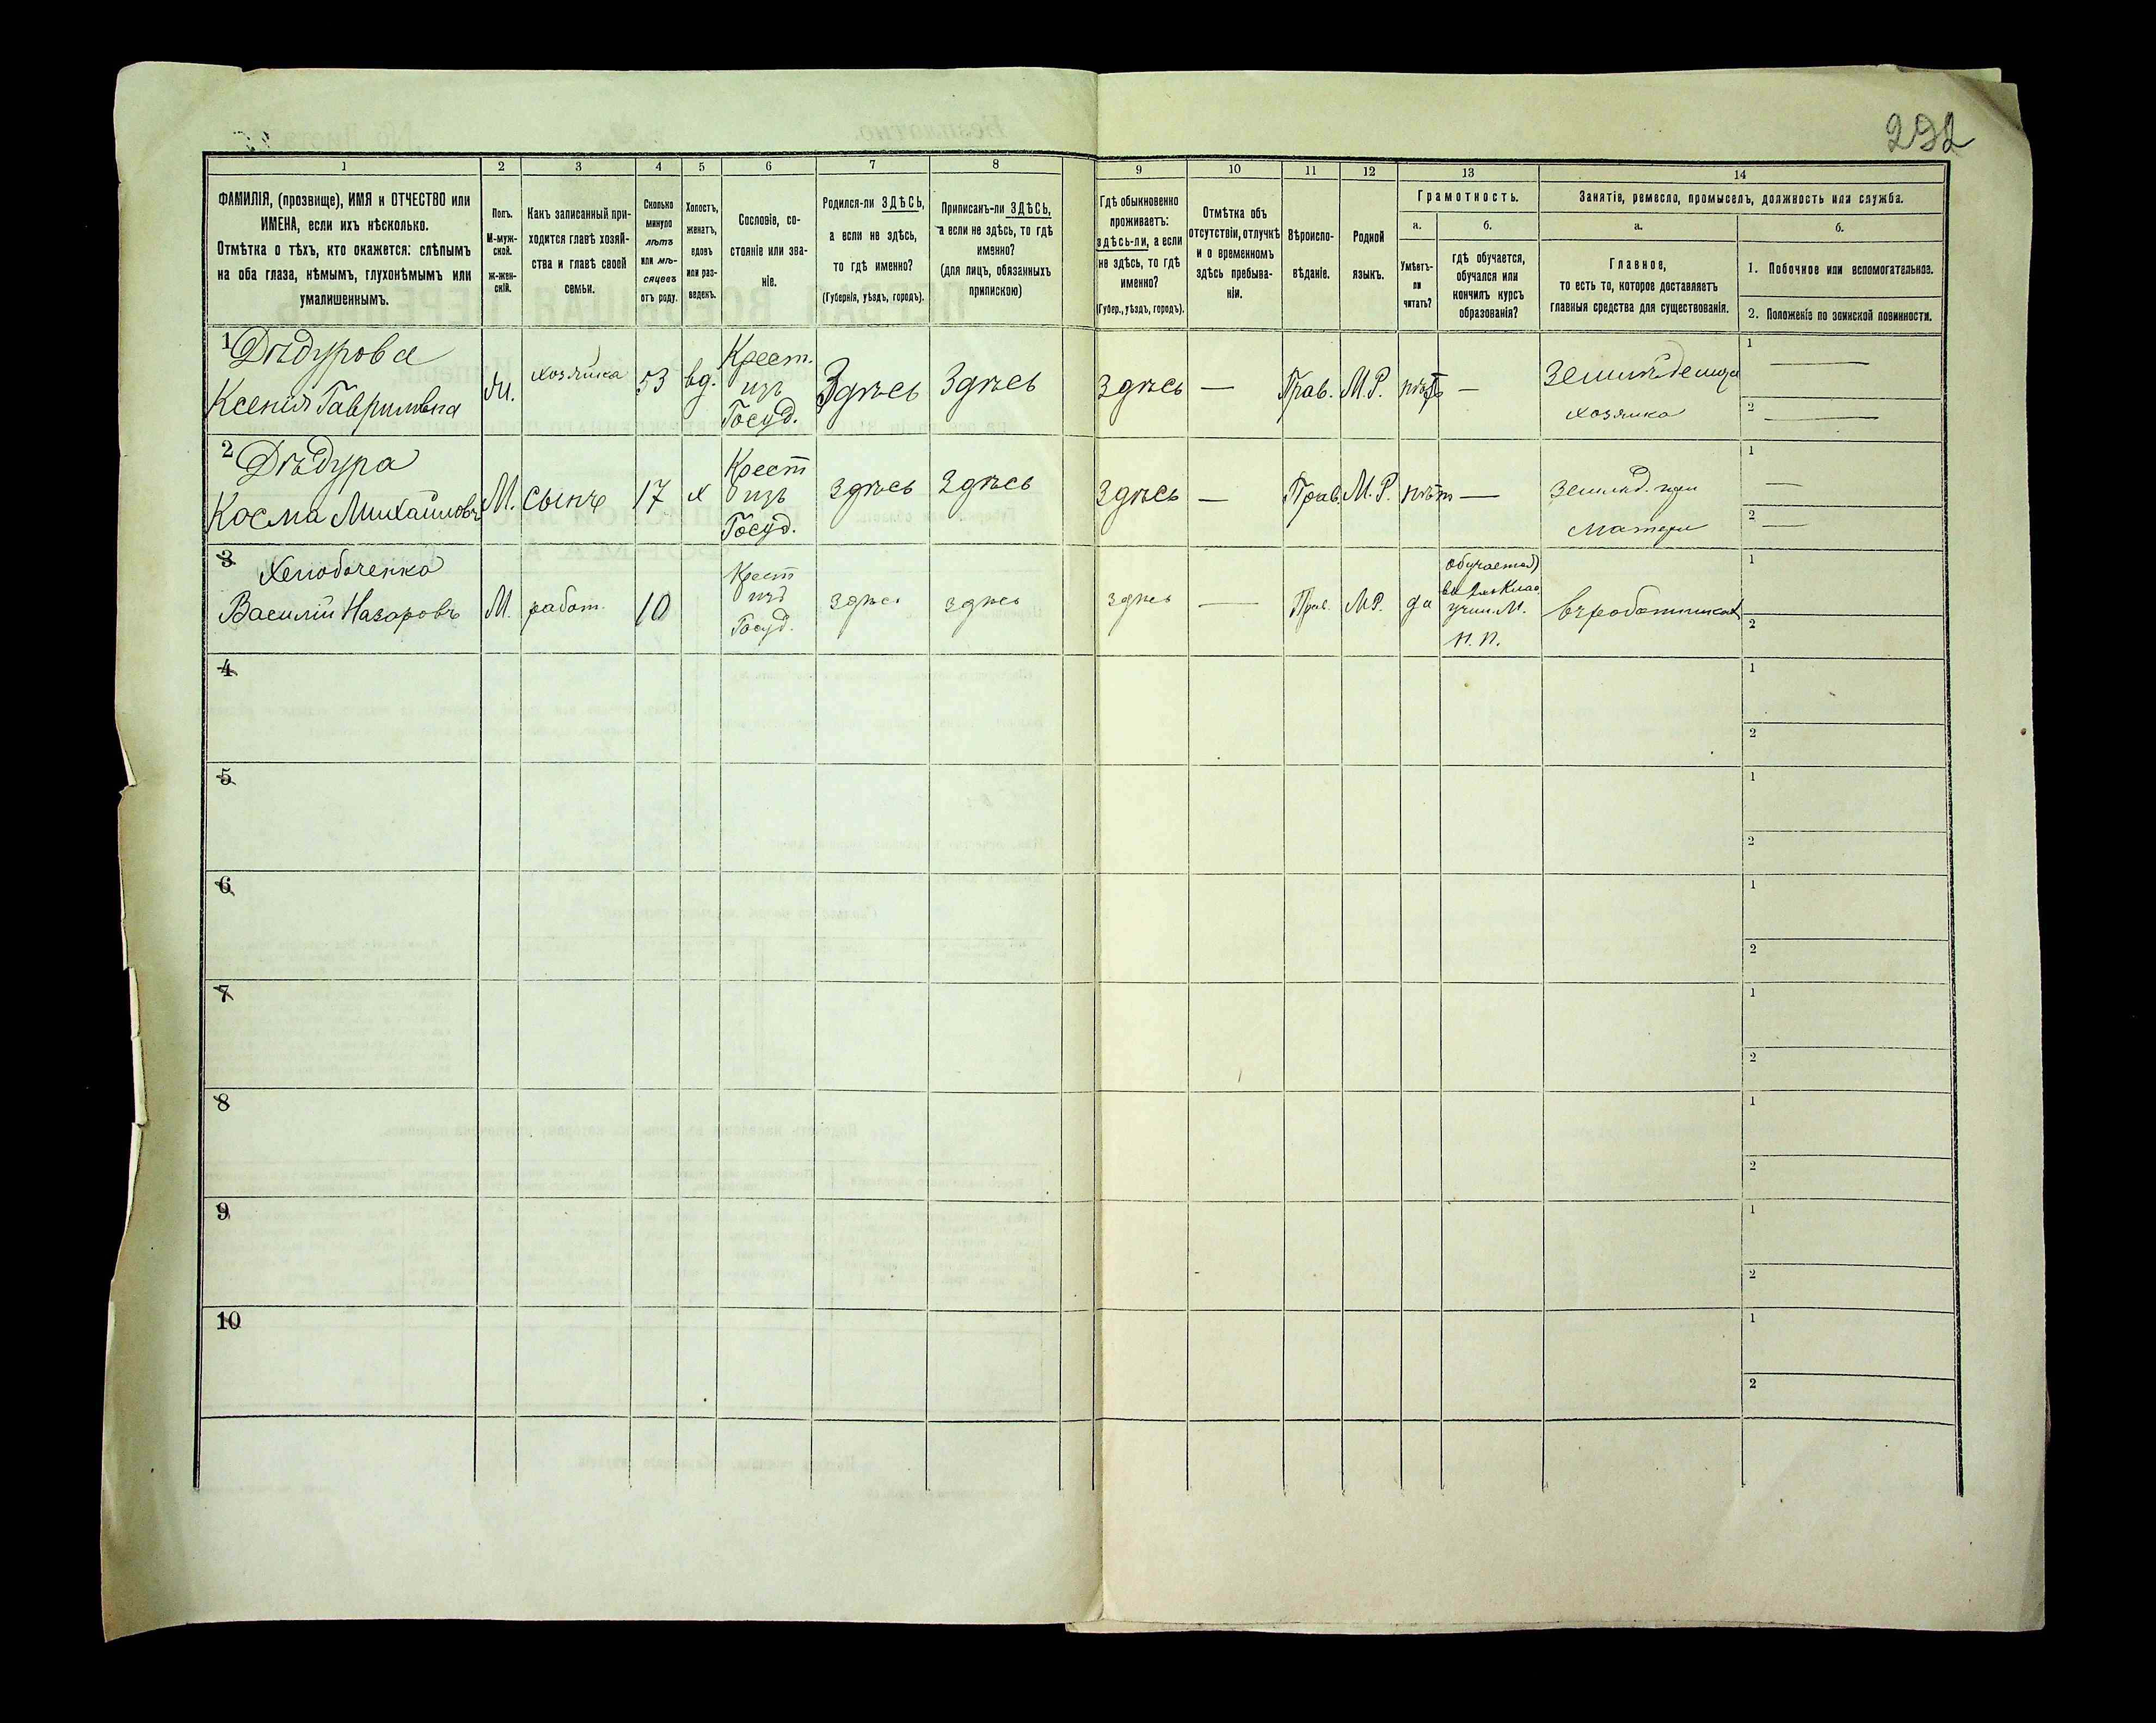 292
1
2
3
4
5
6
7
8
9
10
11
12
13
14
ФАМИЛІЯ, (прозвище), ИМЯ и ОТЧЕСТВО или
ИМЕНА, если ихъ нѣсколько.
Отмѣтка о тѣхъ, кто окажется: слѣпымъ
на оба глаза, нѣмымъ, глухонѣмымъ или
умалишеннымъ.
Полъ.
М-муж-
ской.
ж-жен-
скій.
Какъ записанный при-
ходится главѣ хозяй-
ства и главѣ своей
семьи.
Сколько
минуло
лѣтъ
или мѣ-
сяцевъ
отъ роду.
Холостъ,
женатъ,
вдовъ
или раз-
веденъ.
Сословіе, со-
стояніе или зва-
ніе.
Родился-ли ЗДѢСЬ,
а если не здѣсь,
то гдѣ именно?
(Губернія, уѣздъ, городъ).
Приписанъ-ли ЗДѢСЬ,
а если не здѣсь, то гдѣ
именно?
(для лицъ, обязанныхъ
припискою)
Гдѣ обыкновенно
проживаетъ:
здѣсь-ли, а если
не здѣсь, то гдѣ
именно?
(Губер., уѣздъ, городъ).
Отмѣтка объ
отсутствіи, отлучкѣ
и о временномъ
здѣсь пребыва-
ніи.
Вѣроиспо-
вѣданіе.
Родной
языкъ.
Грамотность.
а.
Умѣетъ-
ли
читать?
б.
гдѣ обучается,
обучался или
кончилъ курсъ
образованія?
Занятіе, ремесло, промыселъ, должность или служба.
а.
Главное,
то есть то, которое доставляетъ
главныя средства для существованія.
б.
1. Побочное или вспомогательное.
2. Положеніе по воинской повинности.
1 Дѣдурова
Ксенія Гавриловна
хозяйка
53
вд.
Крест.
изъ
Госуд.
Здѣсь
Здѣсь
Здѣсь
—
Прав.
М.Р.
нѣтъ
—
хозяйка
1 —
2 —
2 Дѣдура
Косма Михайловъ
М.
сынъ
17
х
Крест
изъ
Госуд.
здѣсь
здѣсь
здѣсь
—
Прав.
М.Р.
нѣтъ
—
Землед. при
матери
1 —
2 —
3
Василій Назаровъ
М.
работ.
10
Крест
изъ
Госуд.
здѣсь
здѣсь
здѣсь
—
Прав.
М.Р.
да
обучается
учил. М.
н. п.
въ работникахъ
1
2
4
1
2
5
1
2
6
1
2
7
1
2
8
1
2
9
1
2
10
1
2